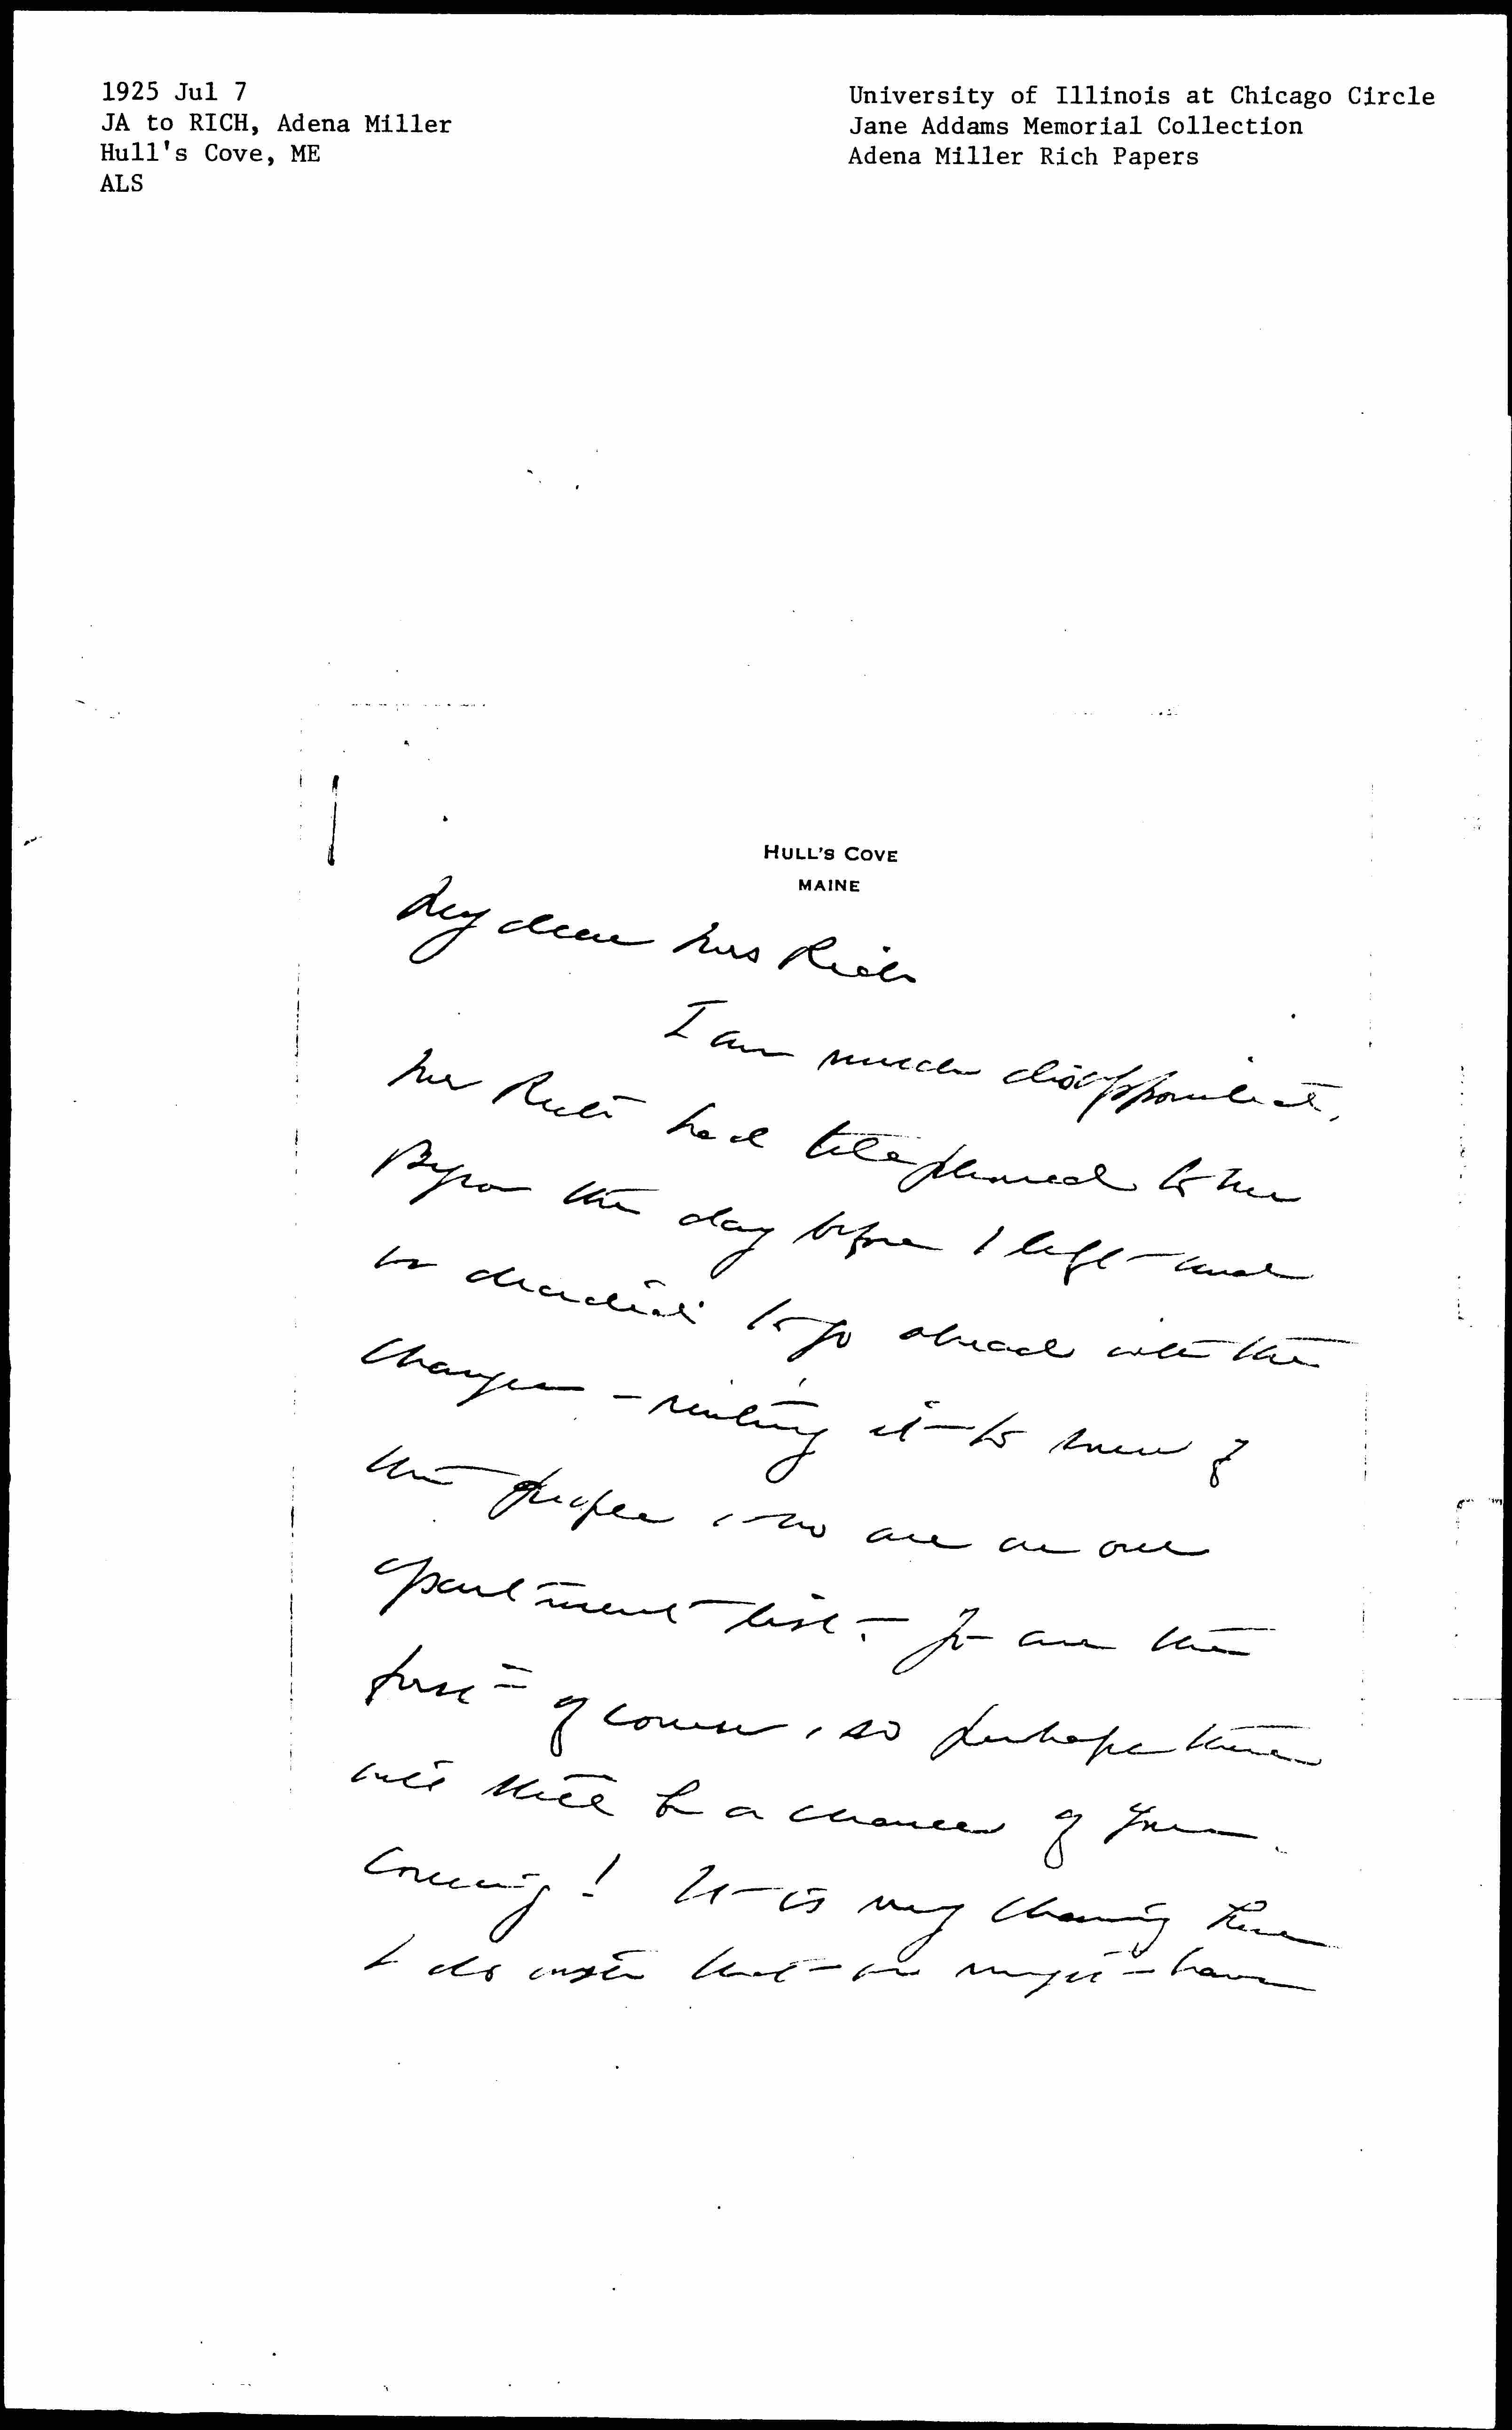 1925 Jul 7
JA to RICH, Adena Miller
Hull's Cove, ME
ALS
University of Illinois at Chicago Circle
Jane Addams Memorial Collection
Adena Miller Rich Papers
HULL'S COVE
MAINE
My dear Mrs Rich
I am much disappointed.
had telephoned to
the day before I left and
we decided to go ahead with the
changes - renting it to some of
the people who are on our
apartment list - You are the
first of course, so perhaps there
will still be a chance of your
coming! It is very charming here
I do wish that we might have